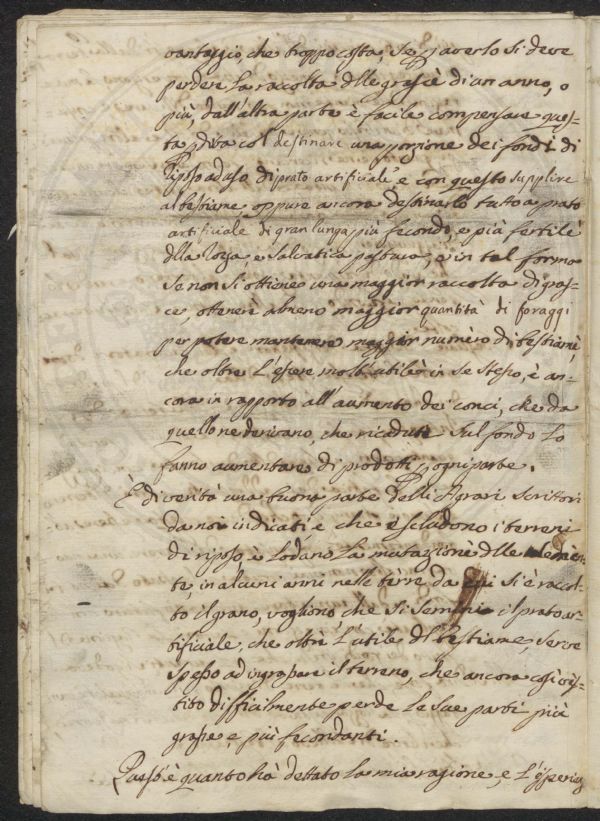 vantaggio, che troppo costa, se p averlo si deve
perdere la raccolta dlle grascie di un anno, o
più, dall'altra parte è facile compensare ques-
ta pdita col destinare una porzione dei fondi di
riposo ad uso di prato artificiale e con questo supplire
al bestiame oppure ancora destinarlo tutto a prato
artificiale di gran lunga più fecondo, e più fertile
dlla soza, e salvatica pastura, e in tal forma
se non si ottiene una maggior raccolta di gras-
ce, ottenere almeno maggior quantità di foraggi
per potere mantenere maggior numero di bestiami,
che oltre l'essere molt'utile in se stesso, è an-
cora in rapporto all'aumento dei conci, che da
quello ne derivano, che ricaduti sul fondo lo
fanno aumentare di prodotti p ogni parte.
È di verità una buona parte delli Agrari scrittori
da noi indicati, e che escludono i terreni
di riposo, e lodano la mutazione dlle semen-
te, in alcuni anni nelle terre da cui si è raccol-
to il grano, vogliono, che si semini il prato ar-
tificiale, che oltre l'utile dl bestiame, serve
spesso ad ingrassare il terreno, che ancora così ves-
tito difficilmente perde le sue parti più
grasse, e più fecondanti.
Questo è quanto hà dettato la mia ragione, e l'esperien